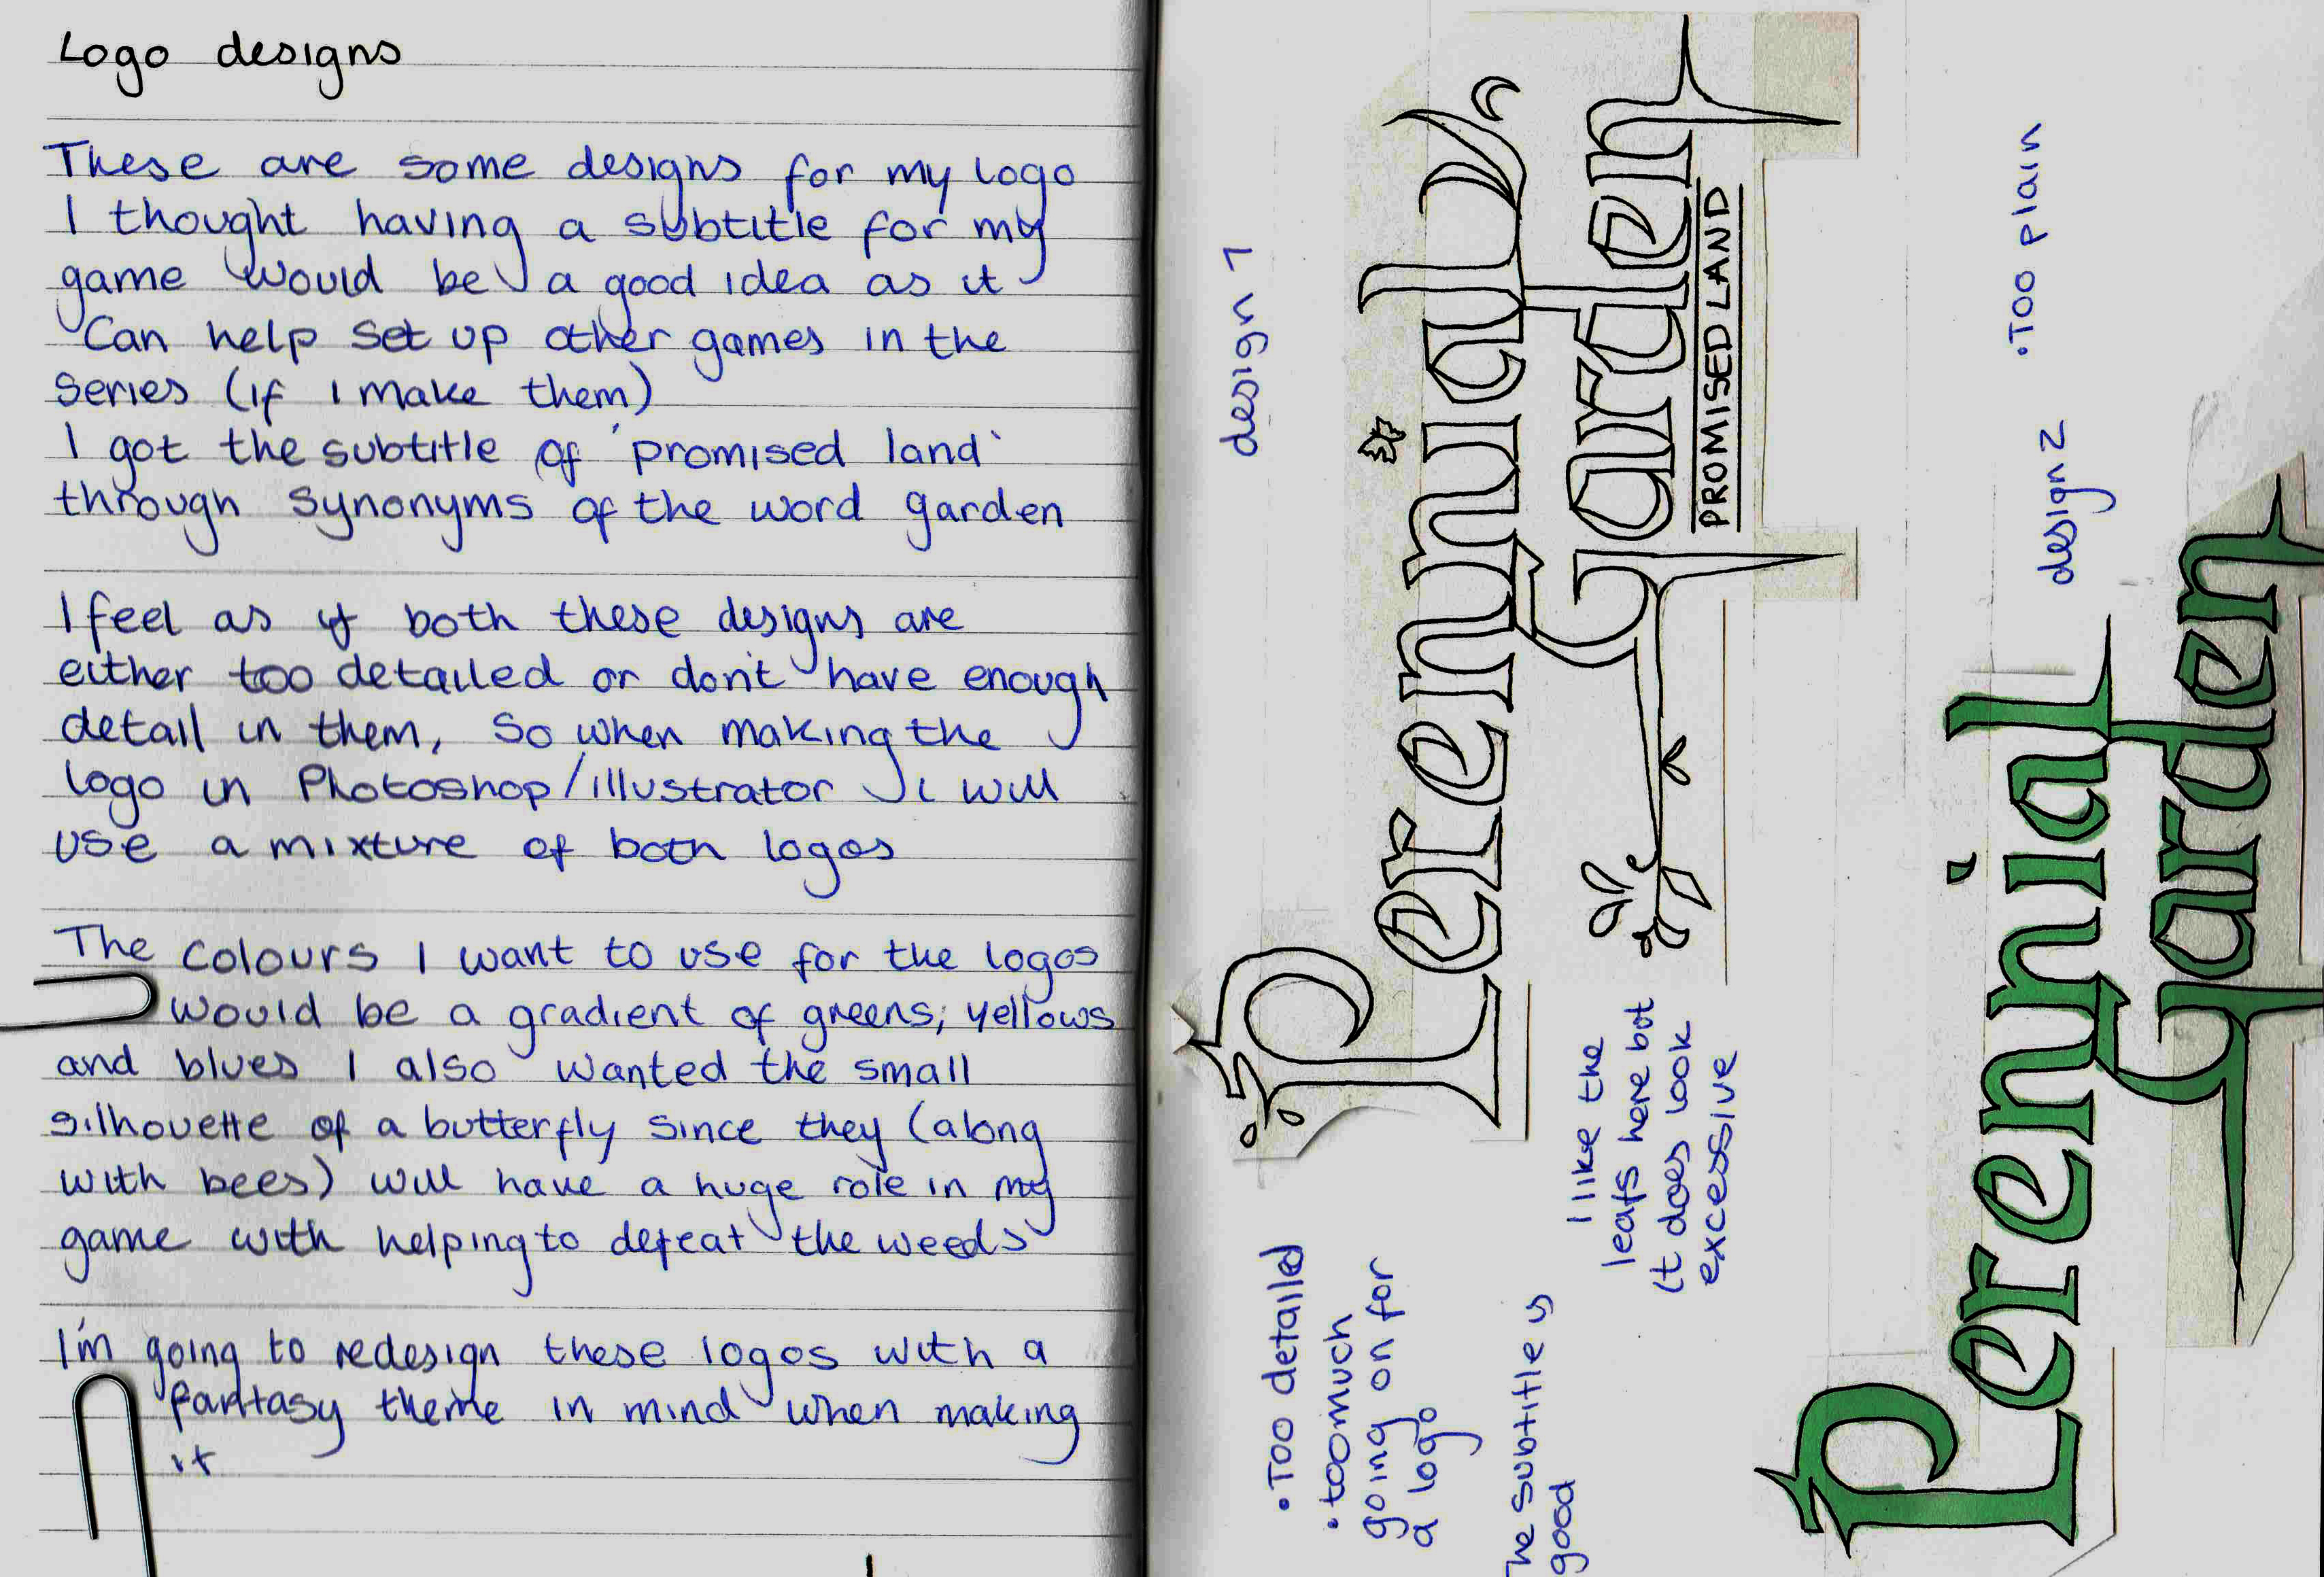 Logo designs
These are some designs for my logo
I thought having a subtitle for my
game would be a good idea as it
Can help set up other games in the
series (if I make them)
I got the subtitle of 'promised land'
through synonyms of the word garden
I feel as if both these designs are
either too detailed or don't have enough
detail in them, so when making the
logo in Photoshop/illustrator i will
use a mixture of both logos
The colours I want to use for the logos
would be a gradient of greens, yellows
and blues I also wanted the small
silhouette of a butterfly since they (along
with bees) will have a huge role in my
game with helping to defeat the weeds
I'm going to redesign these logos with a
fantasy theme in mind when making
it
design 1
Perennial
Garden
PROMISED LAND
• Too detailed
• too much
going on for
a logo
The subtitle is
good
I like the
leafs here bot
it does look
excessive
design 2
• Too plain
Perennial
Garden